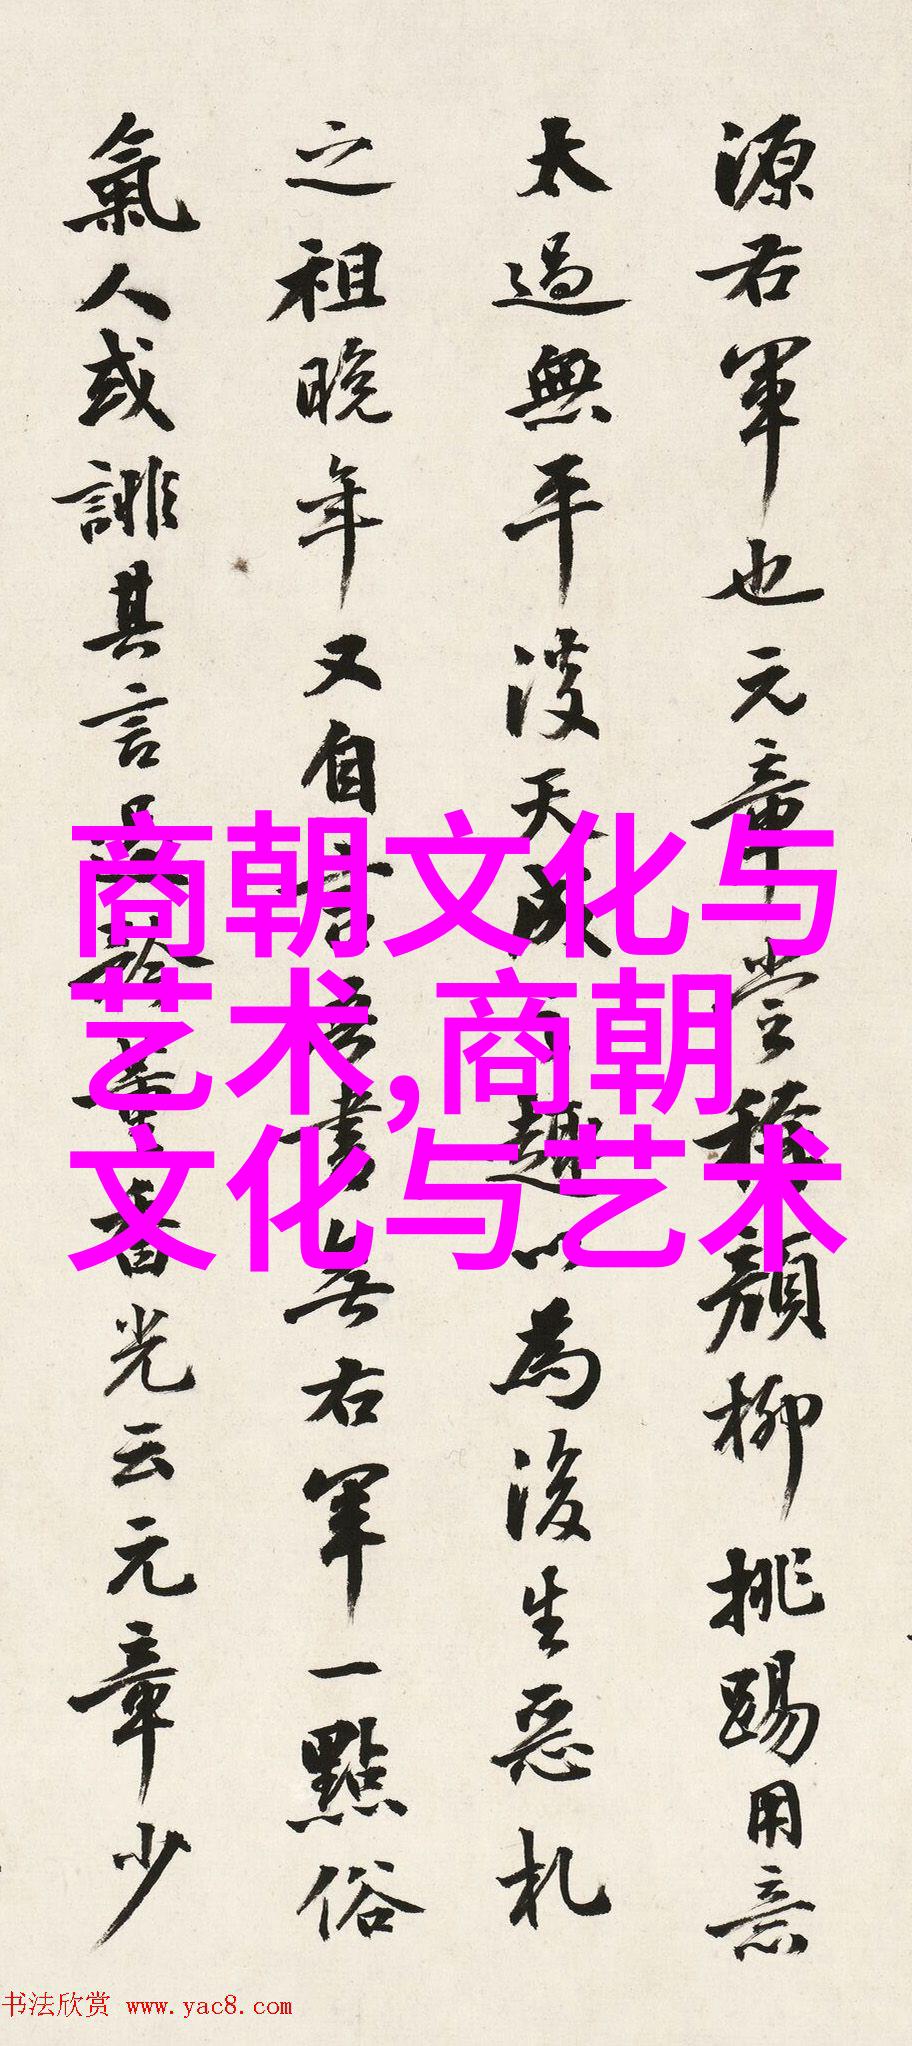 源右軍也元章嘗稱顏柳挑踢用意
太過無平淡天成趣以為後生惡札
之祖晚年又自言吾書無右軍一點俗
氣人或誹其言過矜董香光云元章少
商朝文化与
艺术,商朝
文化与艺术
书法欣赏 www.yac8.com